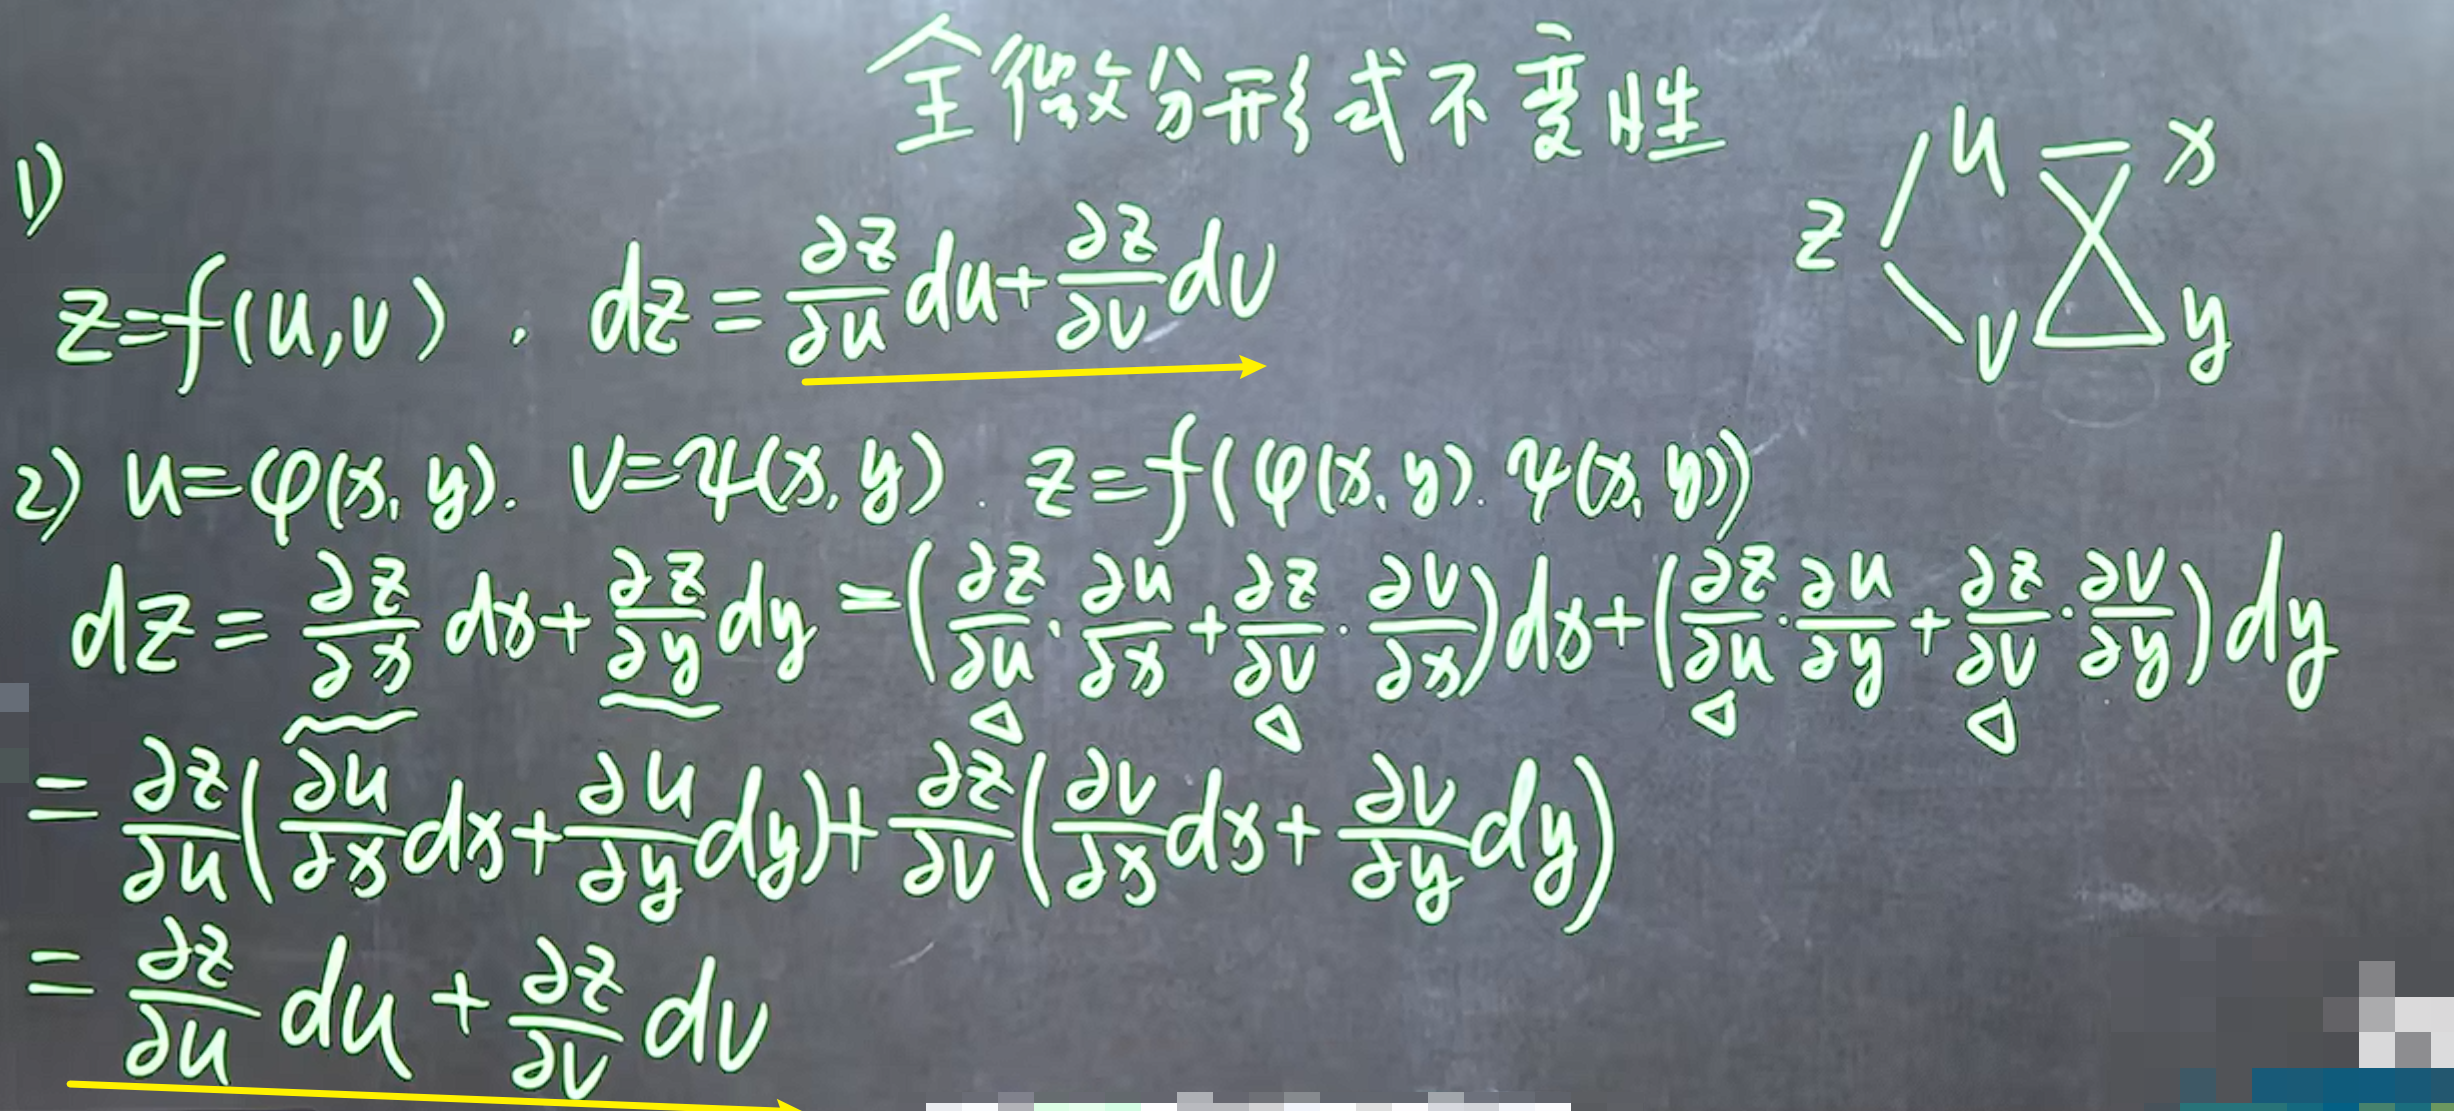 全微分形式不变性
1)
z=f(u,v). dz = ∂z/∂u du + ∂z/∂v dv
z u x
v y
2) u=φ(x,y). v=ψ(x,y). z=f(φ(x,y).ψ(x,y))
dz = ∂z/∂x dx + ∂z/∂y dy = (∂z/∂u · ∂u/∂x + ∂z/∂v · ∂v/∂x)dx + (∂z/∂u · ∂u/∂y + ∂z/∂v · ∂v/∂y)dy
= ∂z/∂u (∂u/∂x dx + ∂u/∂y dy) + ∂z/∂v (∂v/∂x dx + ∂v/∂y dy)
= ∂z/∂u du + ∂z/∂v dv